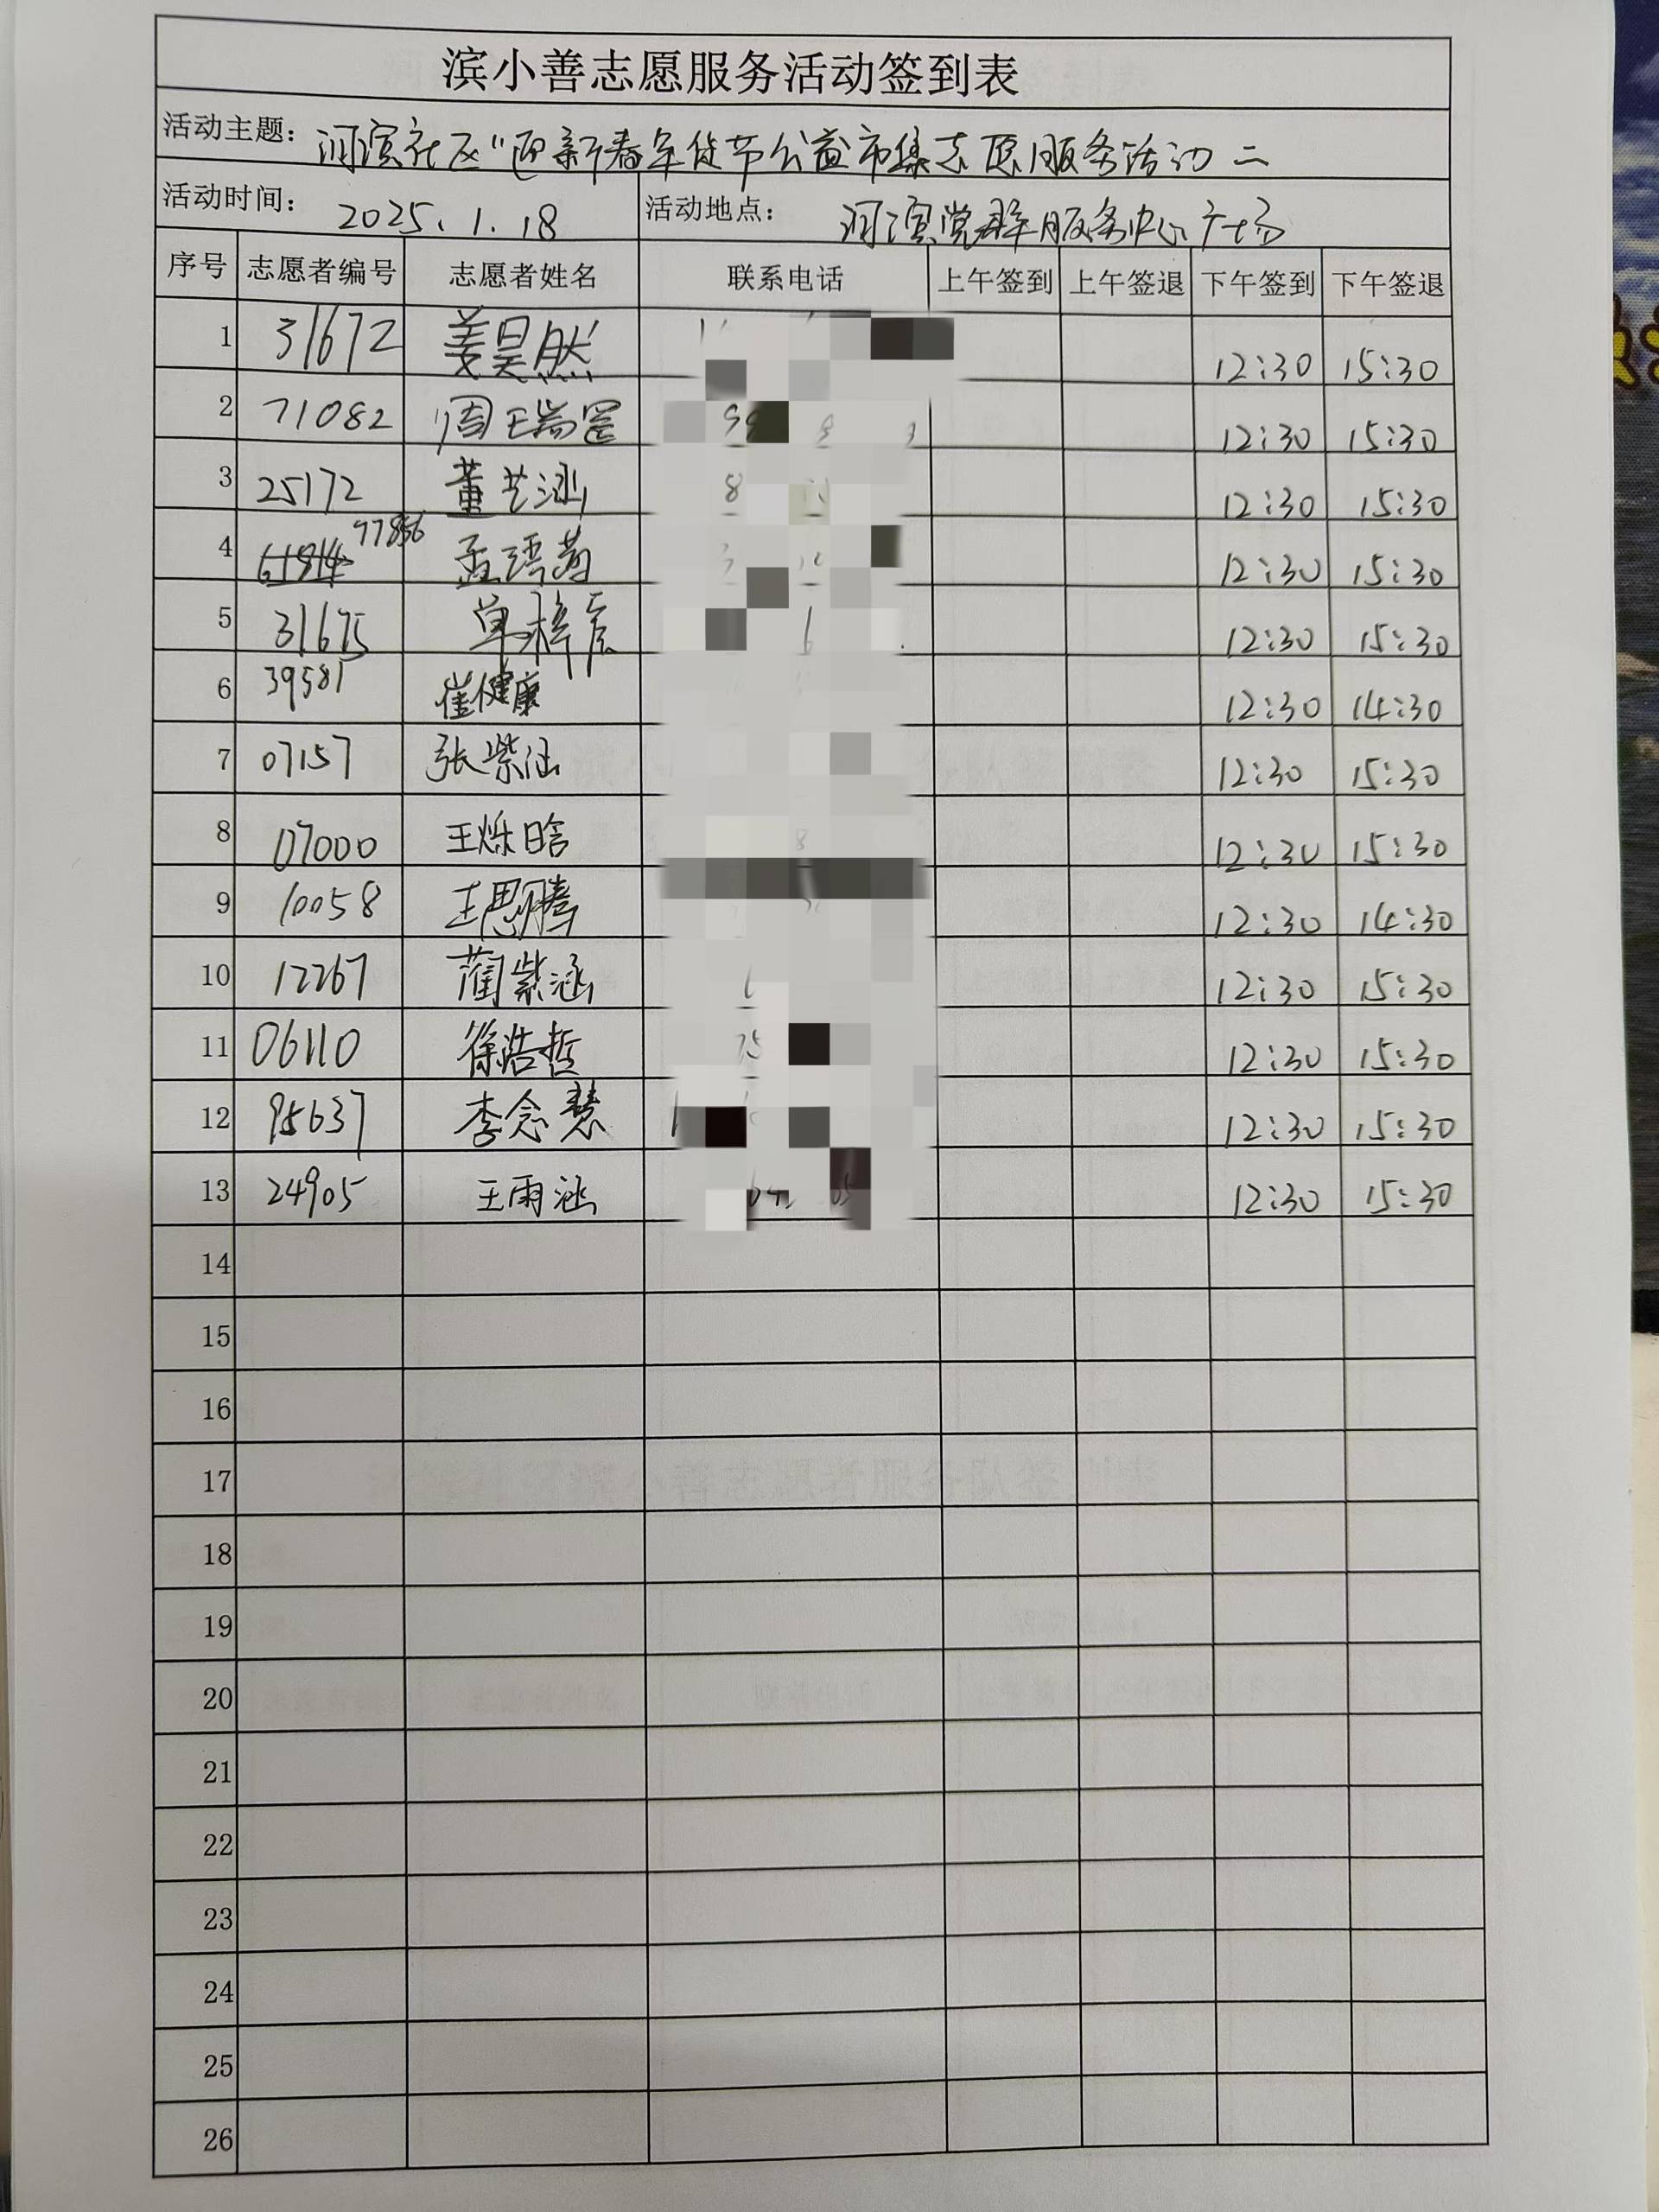 滨小善志愿服务活动签到表
活动主题：河滨社区"迎新春年货节公益市集志愿服务活动二
活动时间：2025.1.18 活动地点：河滨党群服务中心广场
序号 志愿者编号 志愿者姓名 联系电话 上午签到 上午签退 下午签到 下午签退
1 31672 姜昊然 12:30 15:30
2 71082 周玉瑞罡 12:30 15:30
3 25172 董艺涵 12:30 15:30
4 97856 孟 12:30 15:30
5 31675 单梓辰 12:30 15:30
6 39581 崔健康 12:30 14:30
7 07157 张紫涵 12:30 15:30
8 07000 王烁晗 12:30 15:30
9 10058 王思腾 12:30 14:30
10 12267 蔺紫涵 12:30 15:30
11 06110 徐浩哲 12:30 15:30
12 95637 李念慧 12:30 15:30
13 24905 王雨涵 12:30 15:30
14
15
16
17
18
19
20
21
22
23
24
25
26